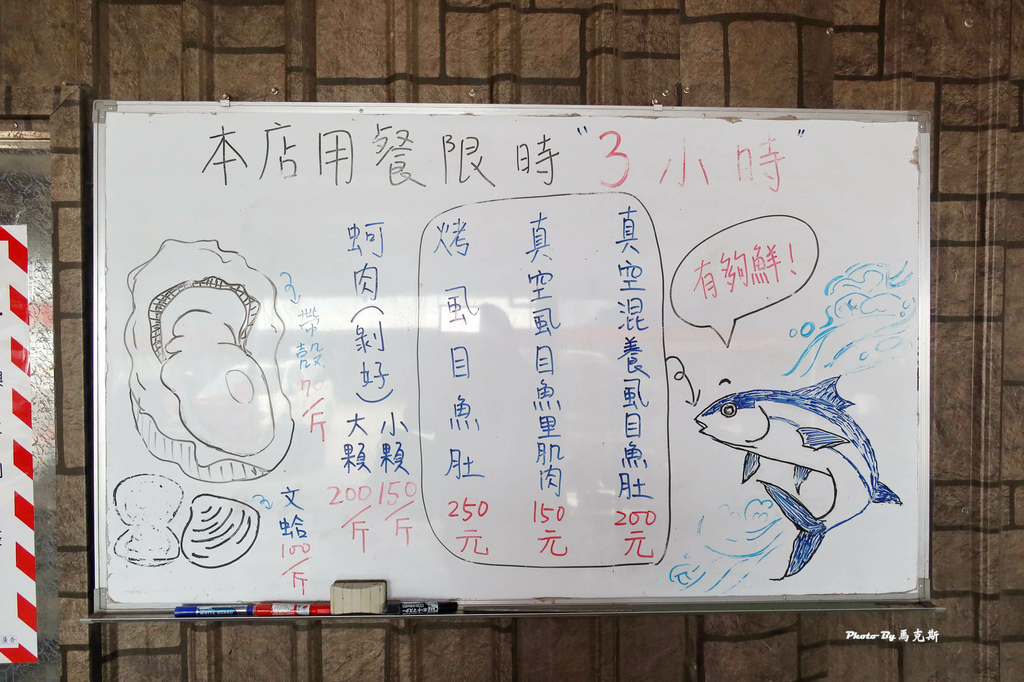 本店用餐限時"3小時"
有夠鮮!
真空混養虱目魚肚 200元
真空虱目魚里肌肉 150元
烤虱目魚肚 250元
蚵肉(剝好)
小顆 150/斤
大顆 200/斤
帶殼 70/斤
文蛤 100/斤
廣告
Photo By 馬克斯